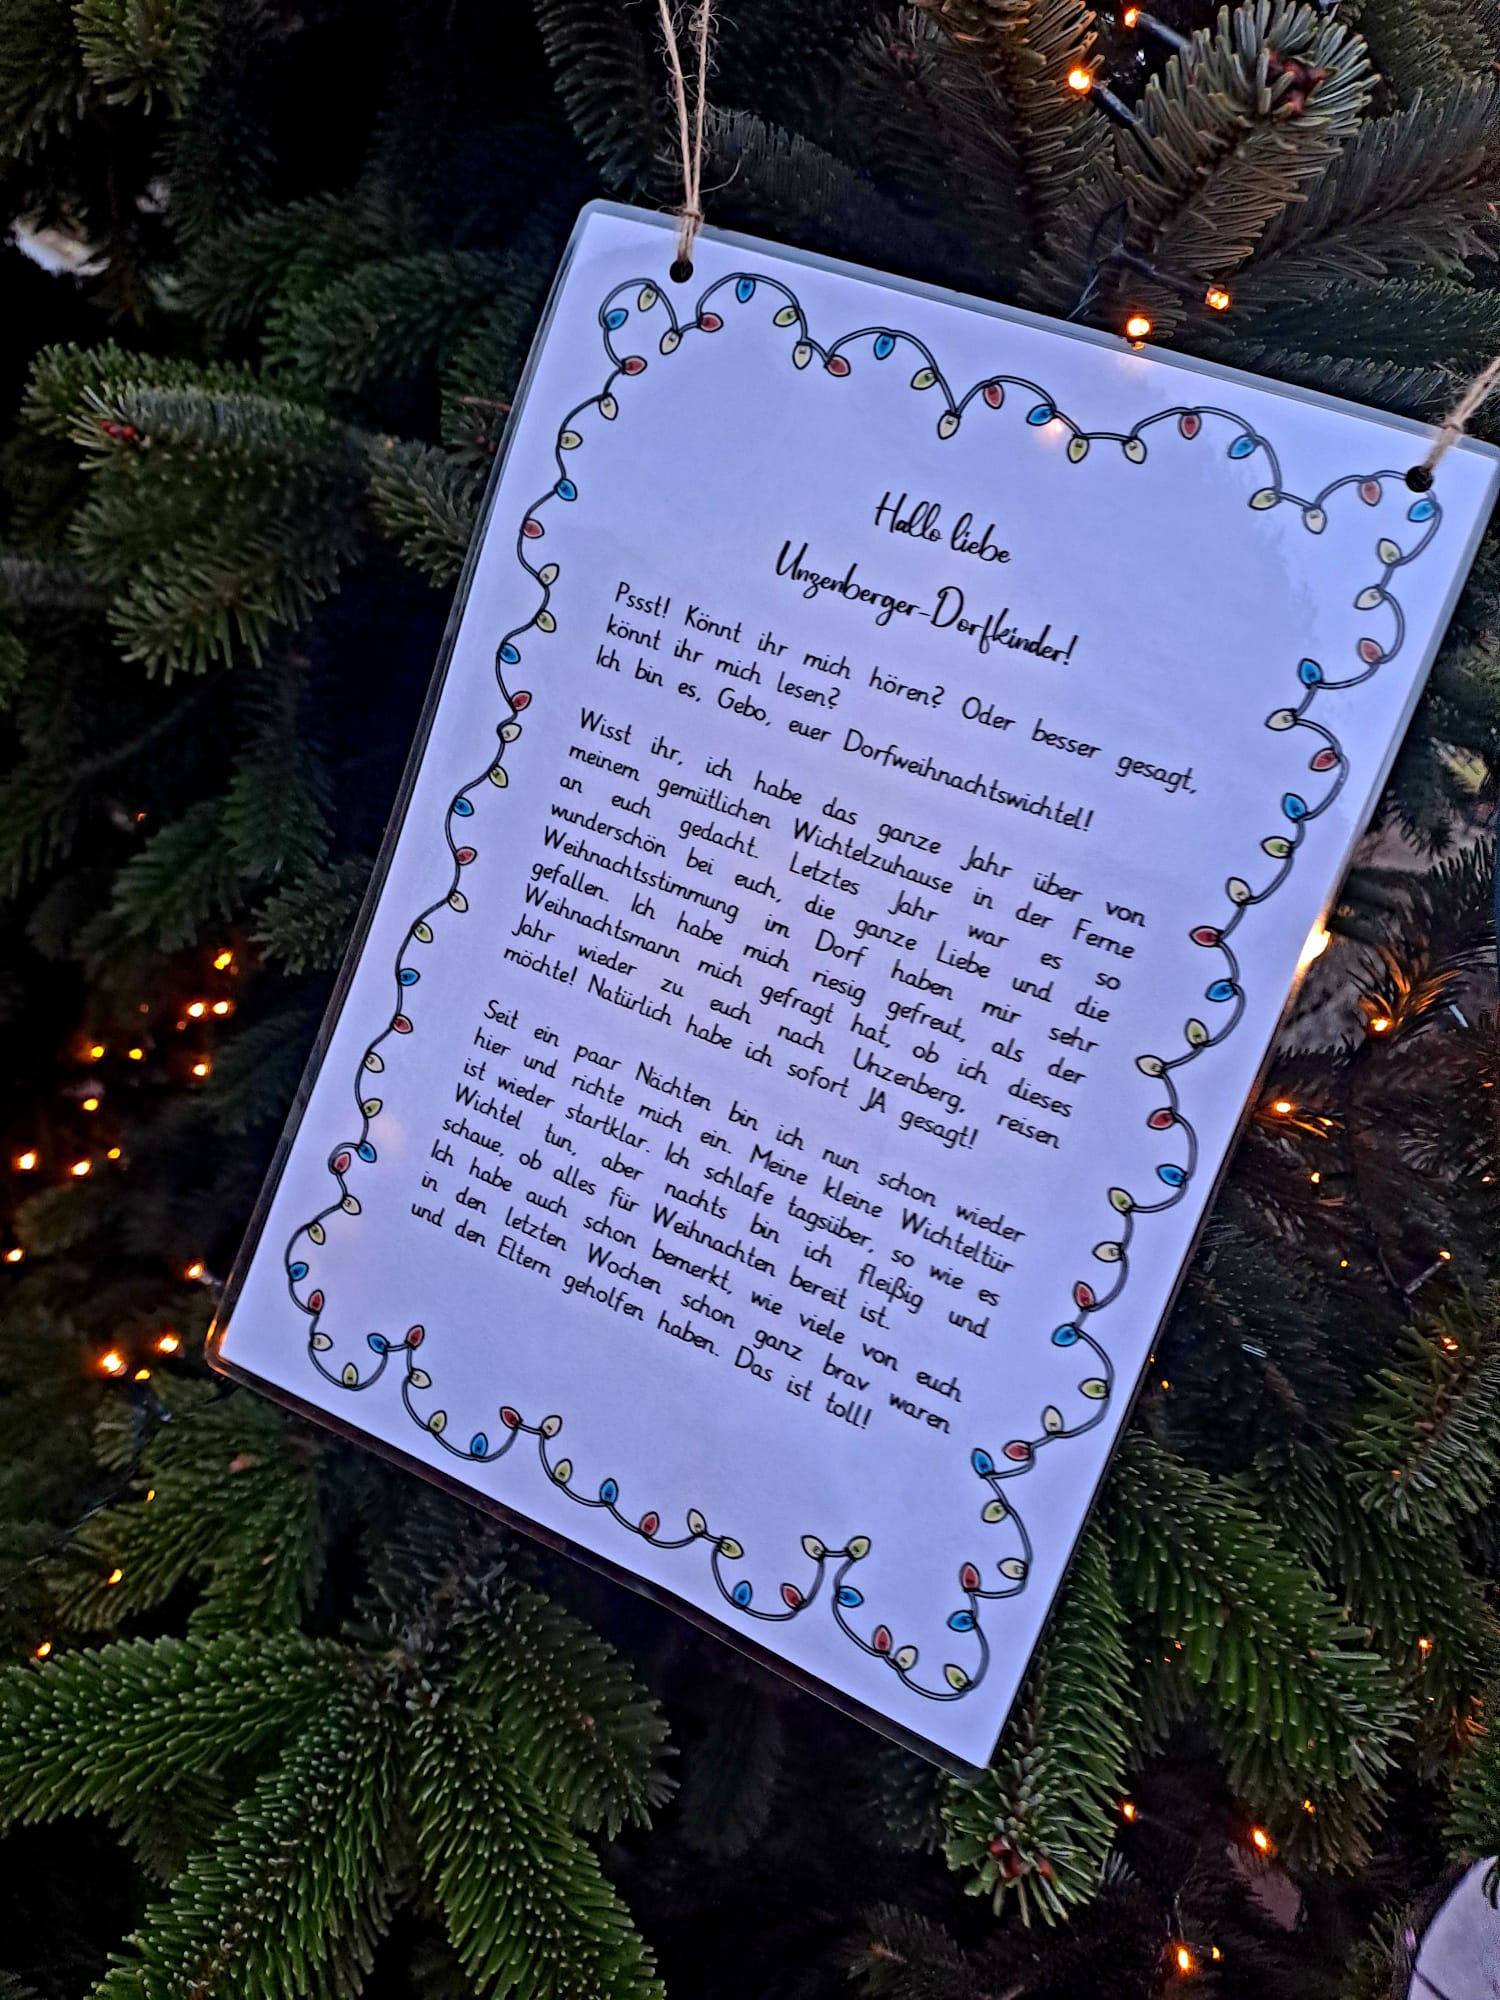 Hallo liebe
Unzenberger-Dorfkinder!
Pssst! Könnt ihr mich hören? Oder besser gesagt,
könnt ihr mich lesen?
Ich bin es, Gebo, euer Dorfweihnachtswichtel!
Wisst ihr, ich habe das ganze Jahr über von
meinem gemütlichen Wichtelzuhause in der Ferne
an euch gedacht. Letztes Jahr war es so
wunderschön bei euch, die ganze Liebe und die
Weihnachtsstimmung im Dorf haben mir sehr
gefallen. Ich habe mich riesig gefreut, als der
Weihnachtsmann mich gefragt hat, ob ich dieses
Jahr wieder zu euch nach Unzenberg, reisen
möchte! Natürlich habe ich sofort JA gesagt!
Seit ein paar Nächten bin ich nun schon wieder
hier und richte mich ein. Meine kleine Wichteltür
ist wieder startklar. Ich schlafe tagsüber, so wie es
Wichtel tun, aber nachts bin ich fleißig und
schaue, ob alles für Weihnachten bereit ist.
Ich habe auch schon bemerkt, wie viele von euch
in den letzten Wochen schon ganz brav waren
und den Eltern geholfen haben. Das ist toll!